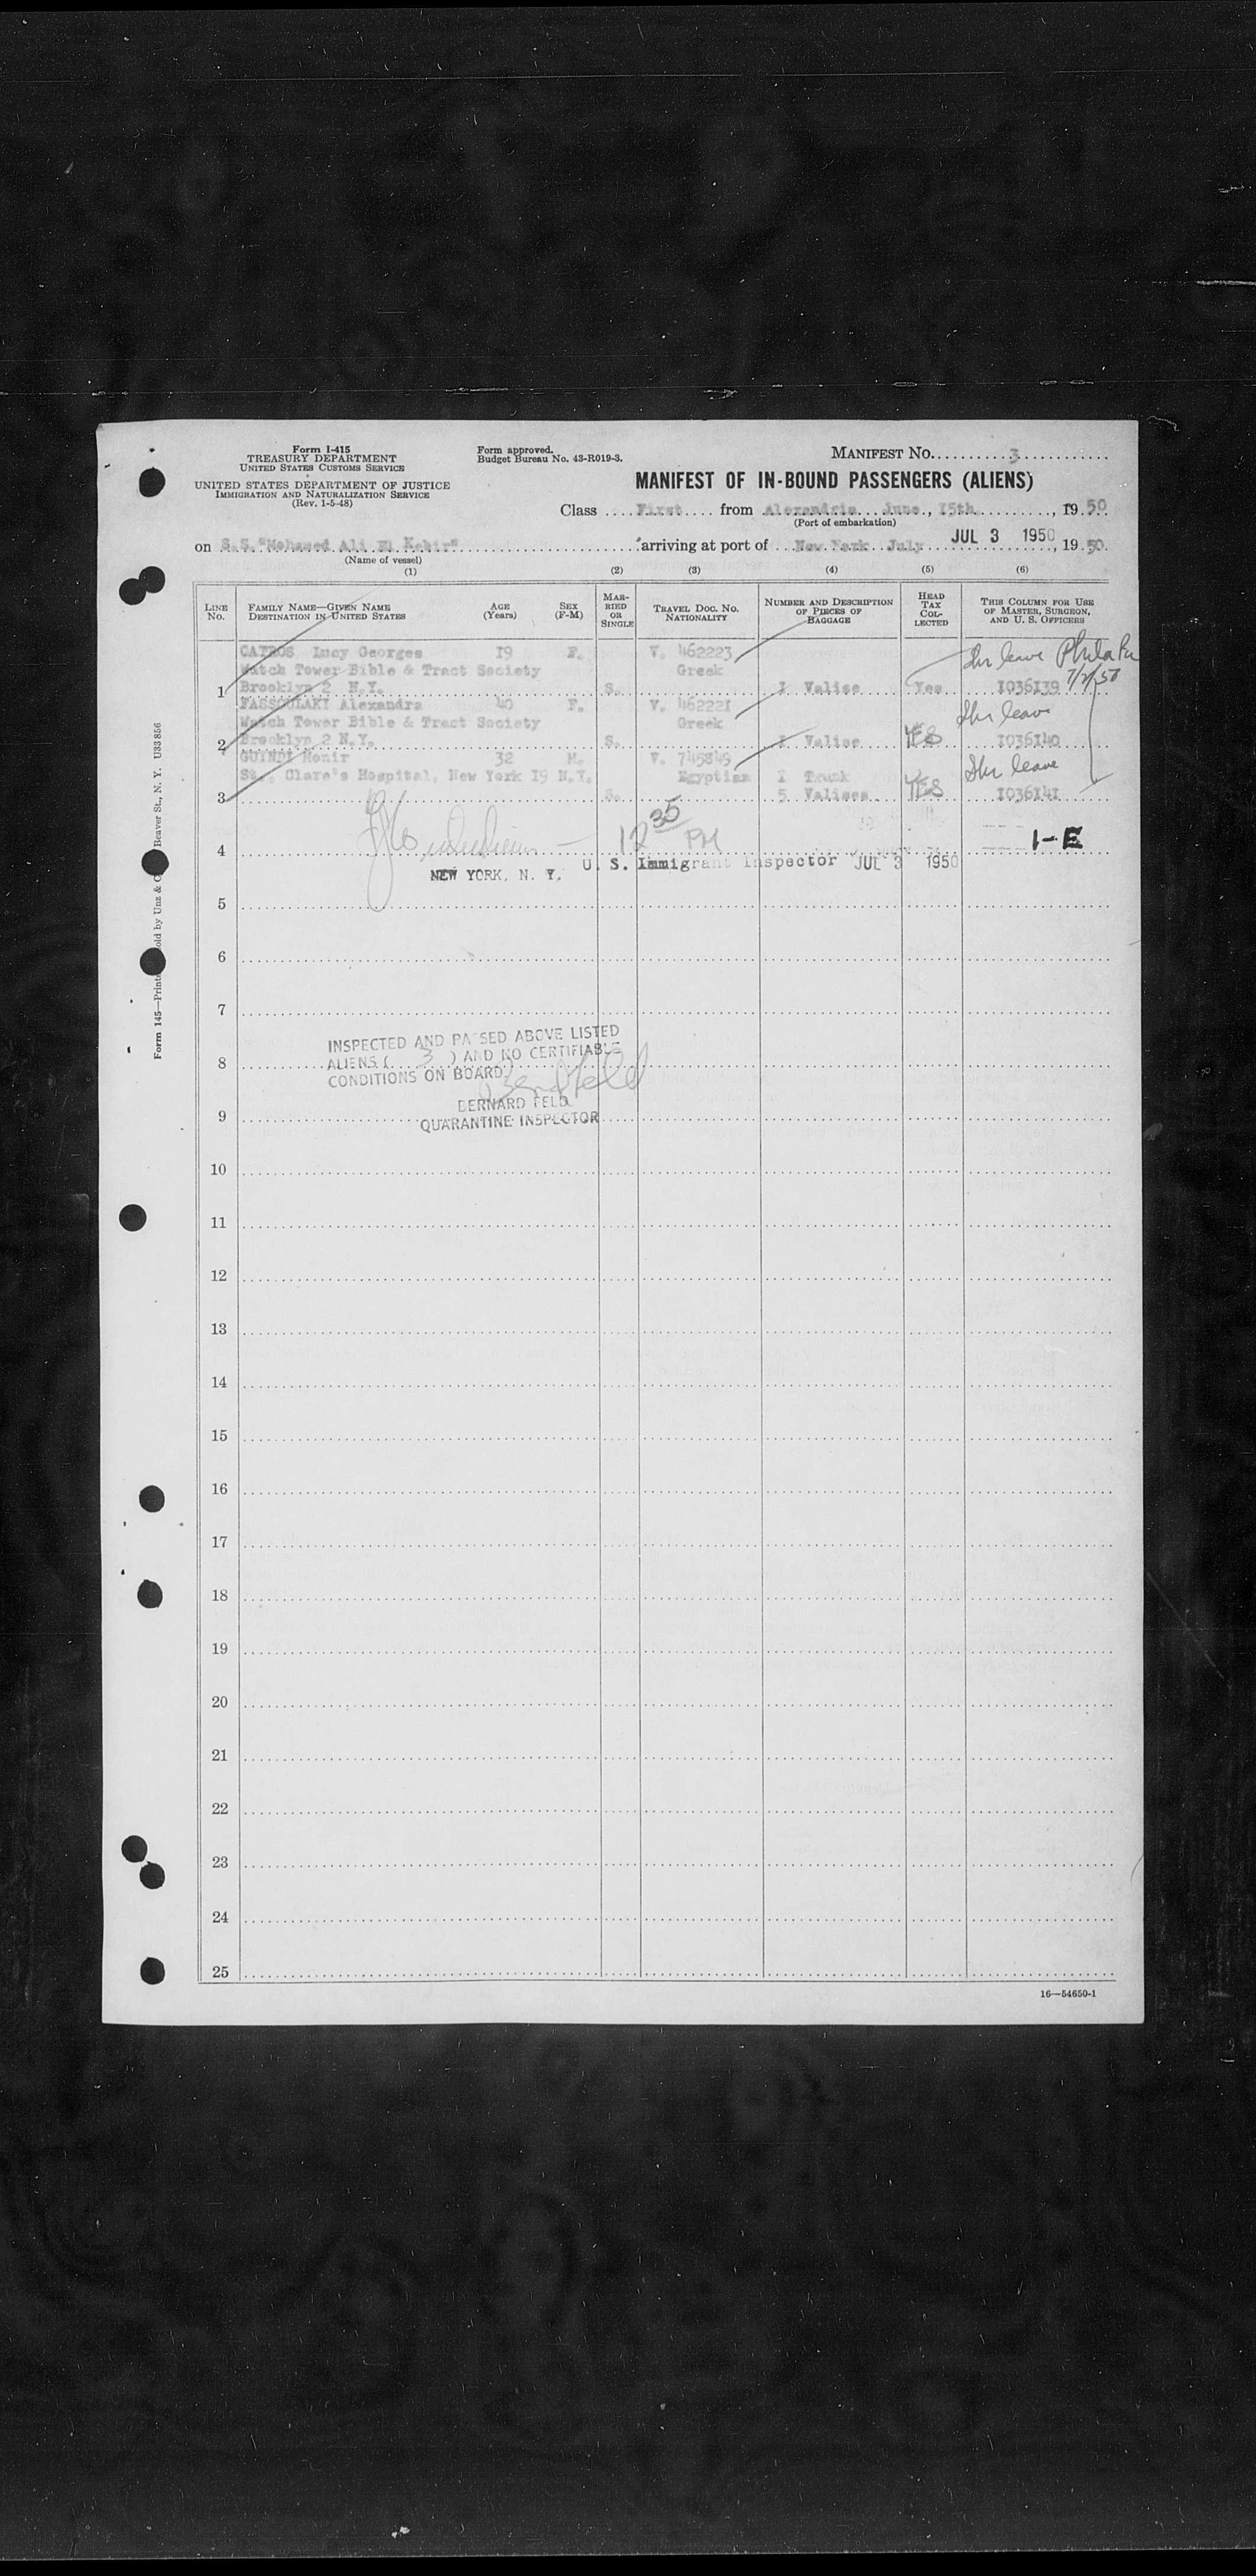 Form I-415
TREASURY DEPARTMENT
UNITED STATES CUSTOMS SERVICE
UNITED STATES DEPARTMENT OF JUSTICE
IMMIGRATION AND NATURALIZATION SERVICE
(Rev. 1-5-48)
Form approved.
Budget Bureau No. 43-R019-3.
MANIFEST NO. 3
MANIFEST OF IN-BOUND PASSENGERS (ALIENS)
Class First from Alexandria June, 15th, 1950
(Port of embarkation)
on S.S."Mohamed Ali El Kebir" arriving at port of New York July JUL 3 1950, 1950
(Name of vessel)
(1) (2) (3) (4) (5) (6)
LINE NO. FAMILY NAME—GIVEN NAME DESTINATION IN UNITED STATES AGE (Years) SEX (F-M) MARRIED OR SINGLE TRAVEL DOC. NO. NATIONALITY NUMBER AND DESCRIPTION OF PIECES OF BAGGAGE HEAD TAX COLLECTED THIS COLUMN FOR USE OF MASTER, SURGEON, AND U. S. OFFICERS
Lucy Georges 19 F. V. 462223 Shr leave Phila Pa
Watch Tower Bible & Tract Society Greek
1 Brooklyn 2 N.Y. S. I Valise Yes I036I39
FASSOULAKI Alexandra 40 F. V. 46222I Shr leave
Watch Tower Bible & Tract Society Greek
2 Brooklyn 2 N.Y. S. I Valise YES I036I40
GUINDI Monir 32 M. V. 745849 Shr leave
St. Clare's Hospital, New York I9 N.Y. Egyptian I Trunk
3 S. 5 Valises YES I036I41
12 35 PM
4 1-E
NEW YORK, N. Y. U. S. Immigrant Inspector JUL 3 1950
5
6
7
INSPECTED AND PASSED ABOVE LISTED
8 ALIENS ( 3 ) AND NO CERTIFIABLE
CONDITIONS ON BOARD.
BERNARD FELD
9 QUARANTINE INSPECTOR
10
11
12
13
14
15
16
17
18
19
20
21
22
23
24
25
16—54650-1
Form 145—Printed Sold by Unz & C Beaver St., N. Y. U33856